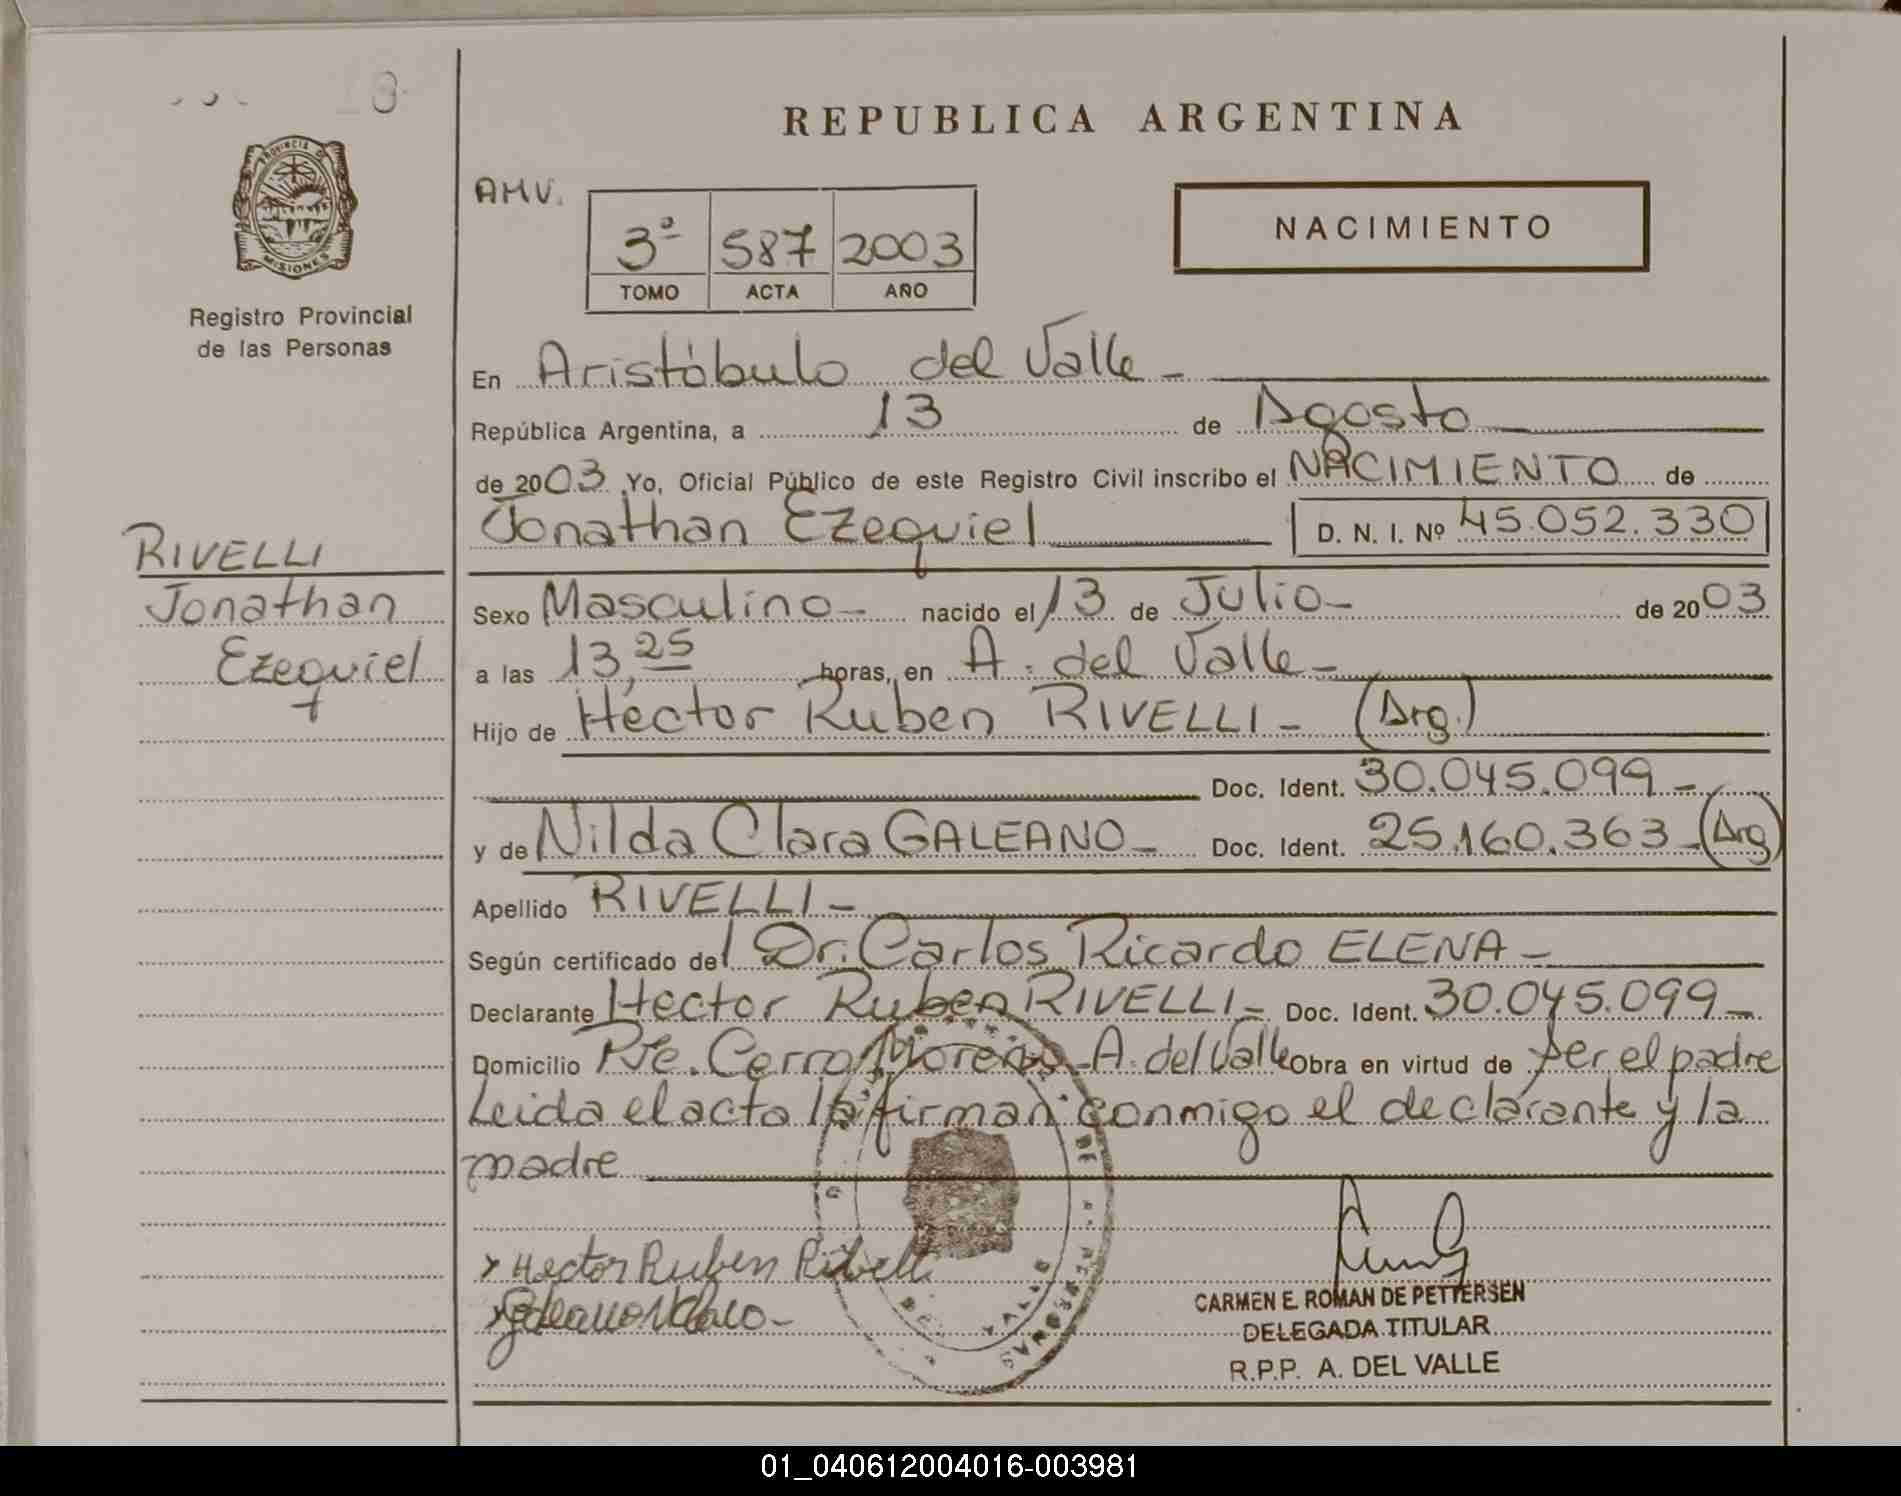 REPUBLICA ARGENTINA
PROVINCIA DE
MISIONES
Registro Provincial
de las Personas
AMV.
3ª 587 2003
TOMO ACTA AÑO
NACIMIENTO
En Aristóbulo del Valle -
República Argentina, a 13 de Agosto
de 2003 Yo, Oficial Público de este Registro Civil inscribo el NACIMIENTO de
Jonathan Ezequiel D. N. I. Nº 45.052.330
RIVELLI
Jonathan
Ezequiel
Sexo Masculino - nacido el 13 de Julio - de 2003
a las 13,25 horas, en A. del Valle -
Hijo de Hector Ruben RIVELLI - (Arg.)
Doc. Ident. 30.045.099 -
y de Nilda Clara GALEANO - Doc. Ident. 25.160.363 - (Arg)
Apellido RIVELLI -
Según certificado del Dr. Carlos Ricardo ELENA -
Declarante Hector Ruben RIVELLI - Doc. Ident. 30.045.099 -
Domicilio Pje. Cerro Moreno - A. del Valle Obra en virtud de ser el padre
Leida el acta la firman conmigo el declarante y la
madre
Hector Ruben Rivelli
Galeano
CARMEN E. ROMAN DE PETTERSEN
DELEGADA TITULAR
R.P.P. A. DEL VALLE
01_040612004016-003981